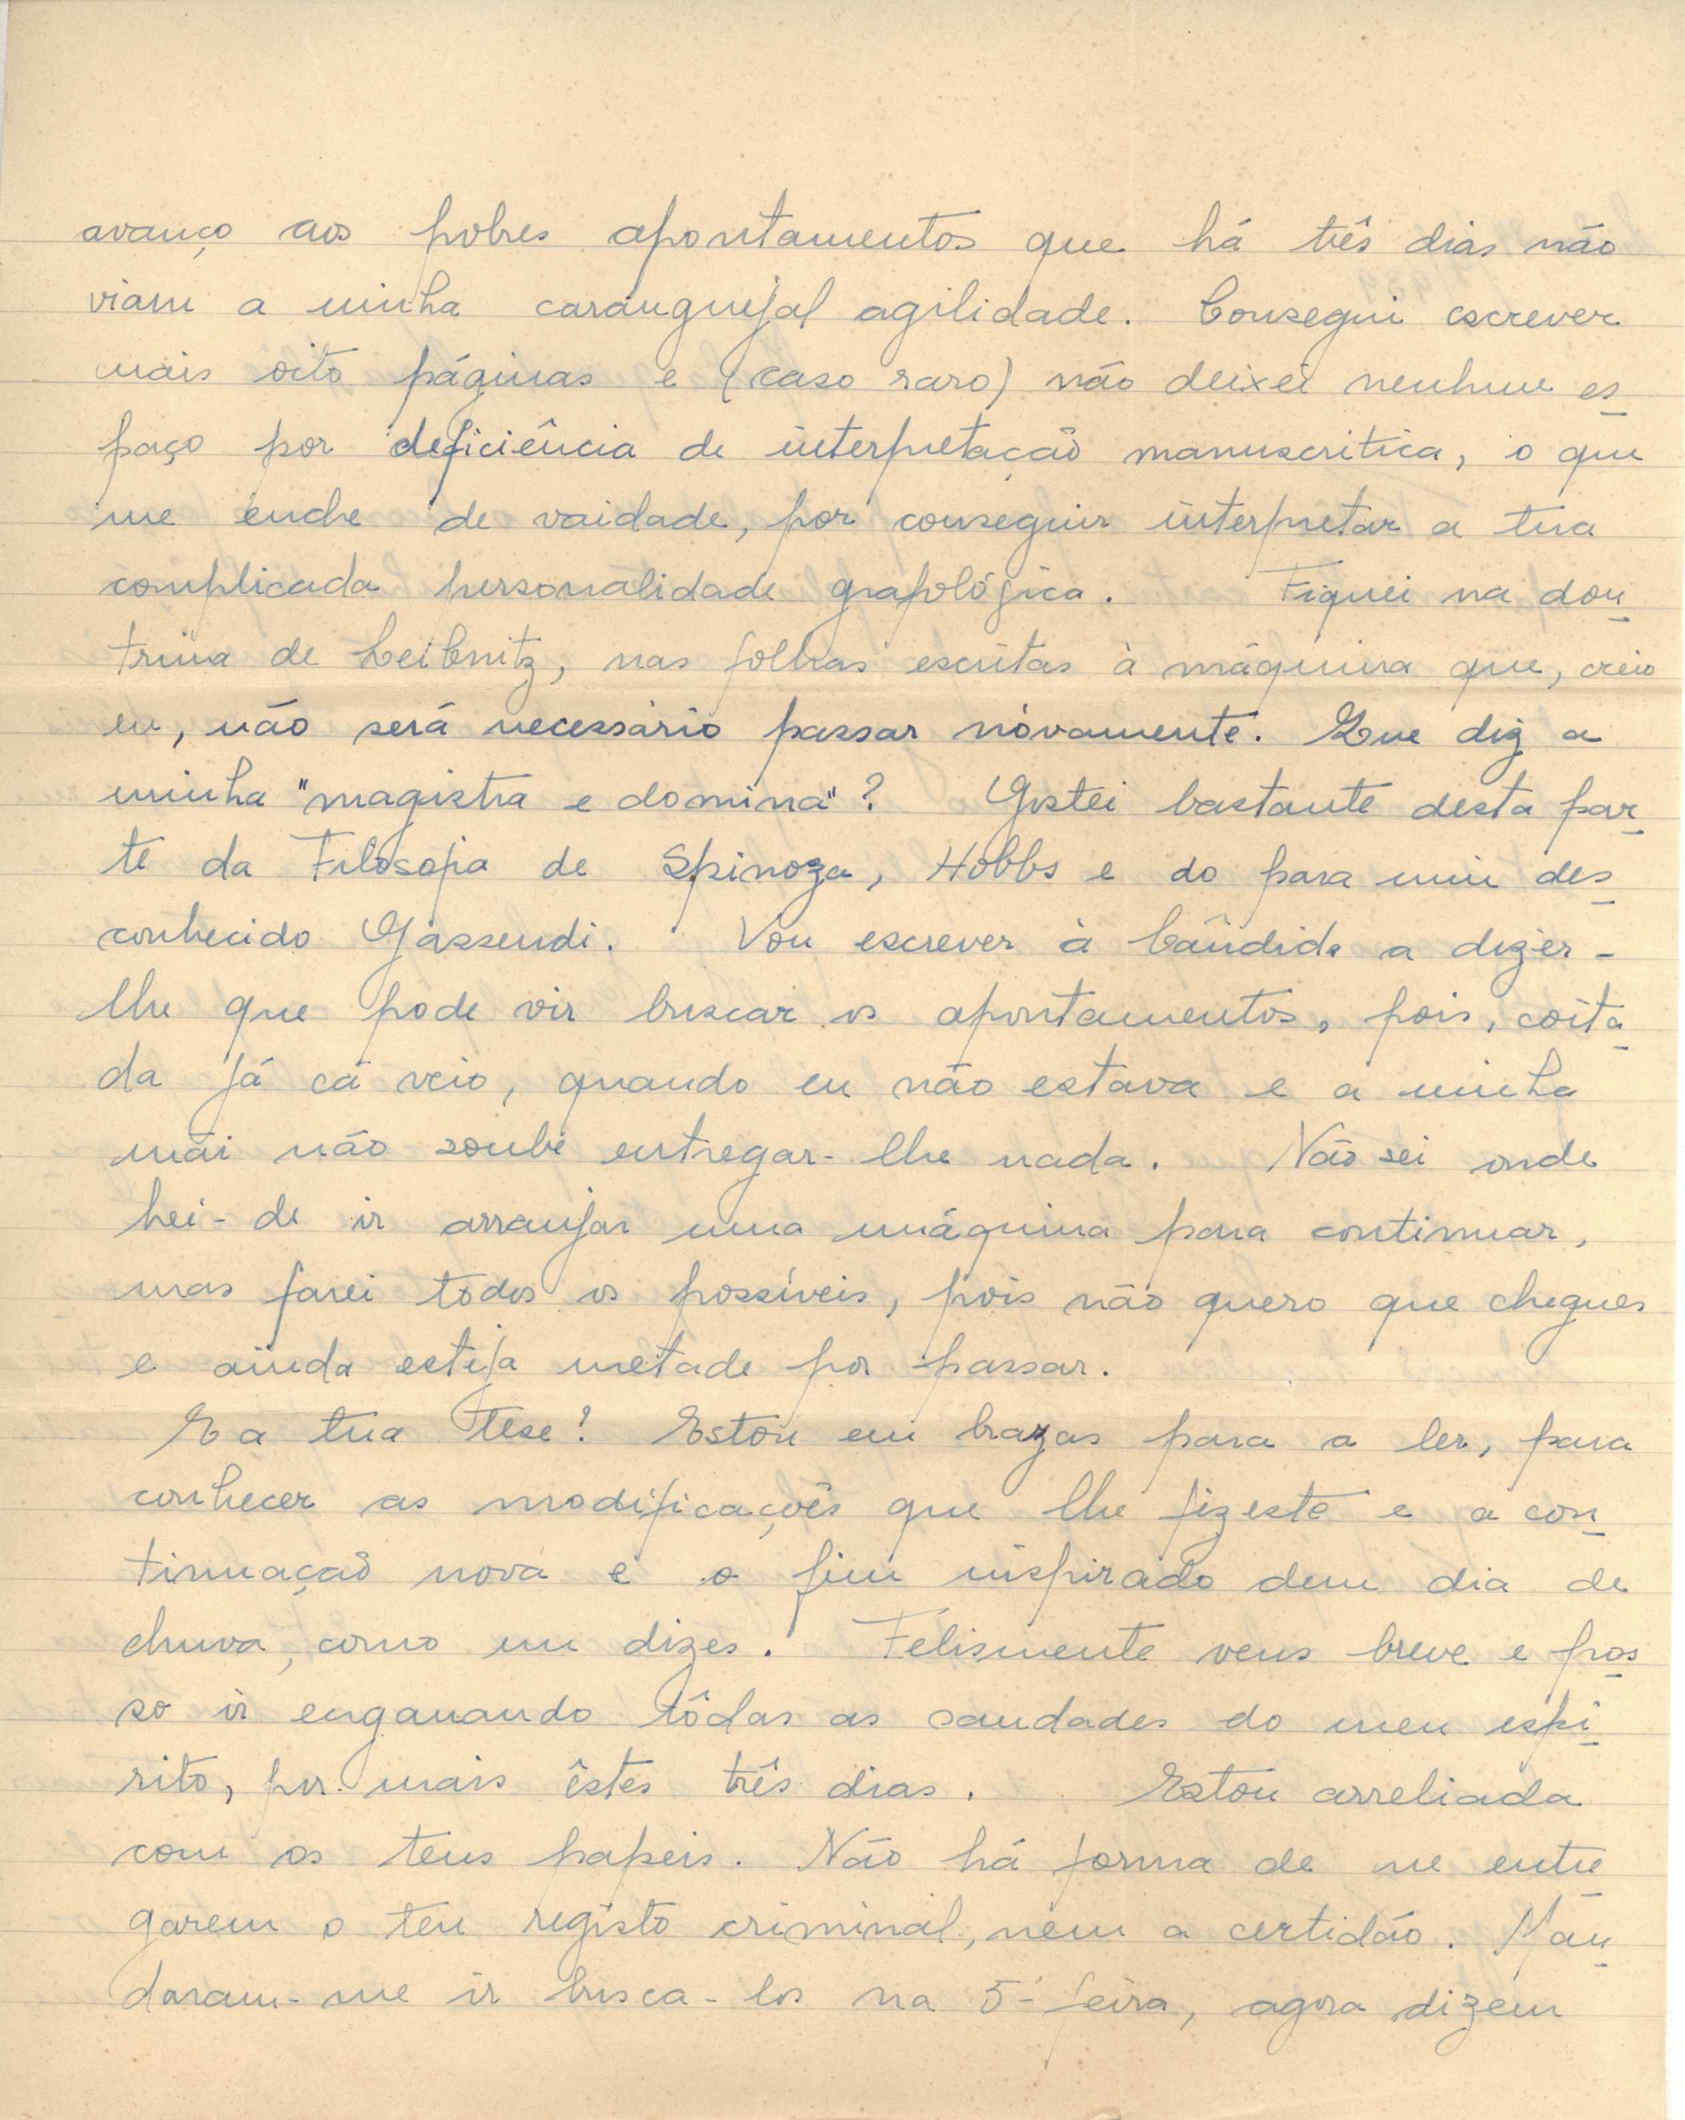 avanço aos pobres apontamentos que há três dias não
viam a minha caranguejal agilidade. Consegui escrever
mais oito páginas e (caso raro) não deixei nenhum es
paço por deficiência de interpretação manuscritica, o que
me enche de vaidade, por conseguir interpretar a tua
complicada personalidade grafológica. Fiquei na dou
trina de Leibnitz, nas folhas escritas à máquina que, creio
eu, não será necessário passar nòvamente. Que diz a
minha "magistra e domina"? Gostei bastante desta par
te da Filosofia de Spinoza, Hobbs e do para mim des
conhecido Gassendi. Vou escrever à Cândida a dizer-
lhe que pode vir buscar os apontamentos, pois, coita
da já cá veio, quando eu não estava e a minha
mãi não soube entregar-lhe nada. Não sei onde
hei-de ir arranjar uma máquina para continuar,
mas farei todos os possíveis, pois não quero que chegues
e ainda esteja metade por passar.
E a tua tese? Estou em brazas para a ler, para
conhecer as modificações que lhe fizeste e a con
tinuação nova e o fim inspirado dum dia de
chuva, como me dizes. Felismente vens breve e pos
so ir enganando tôdas as saudades do meu espi
rito, por mais êstes três dias. Estou arreliada
com os teus papeis. Não há forma de me entre
garem o teu registo criminal, nem a certidão. Man
daram-me ir busca-los na 5ª feira, agora dizem